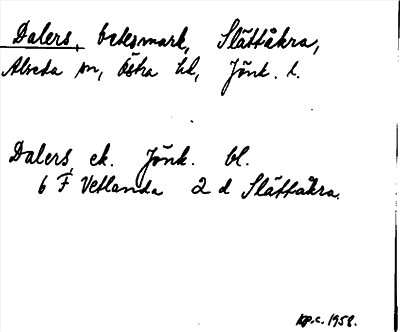 Dalers, betesmark, Slättåkra,
Alseda sn, Östra hd, Jönk. l.
Dalers, ek. Jönk. bl.
6 F Vetlanda 2 d Slättåkra.
1958.